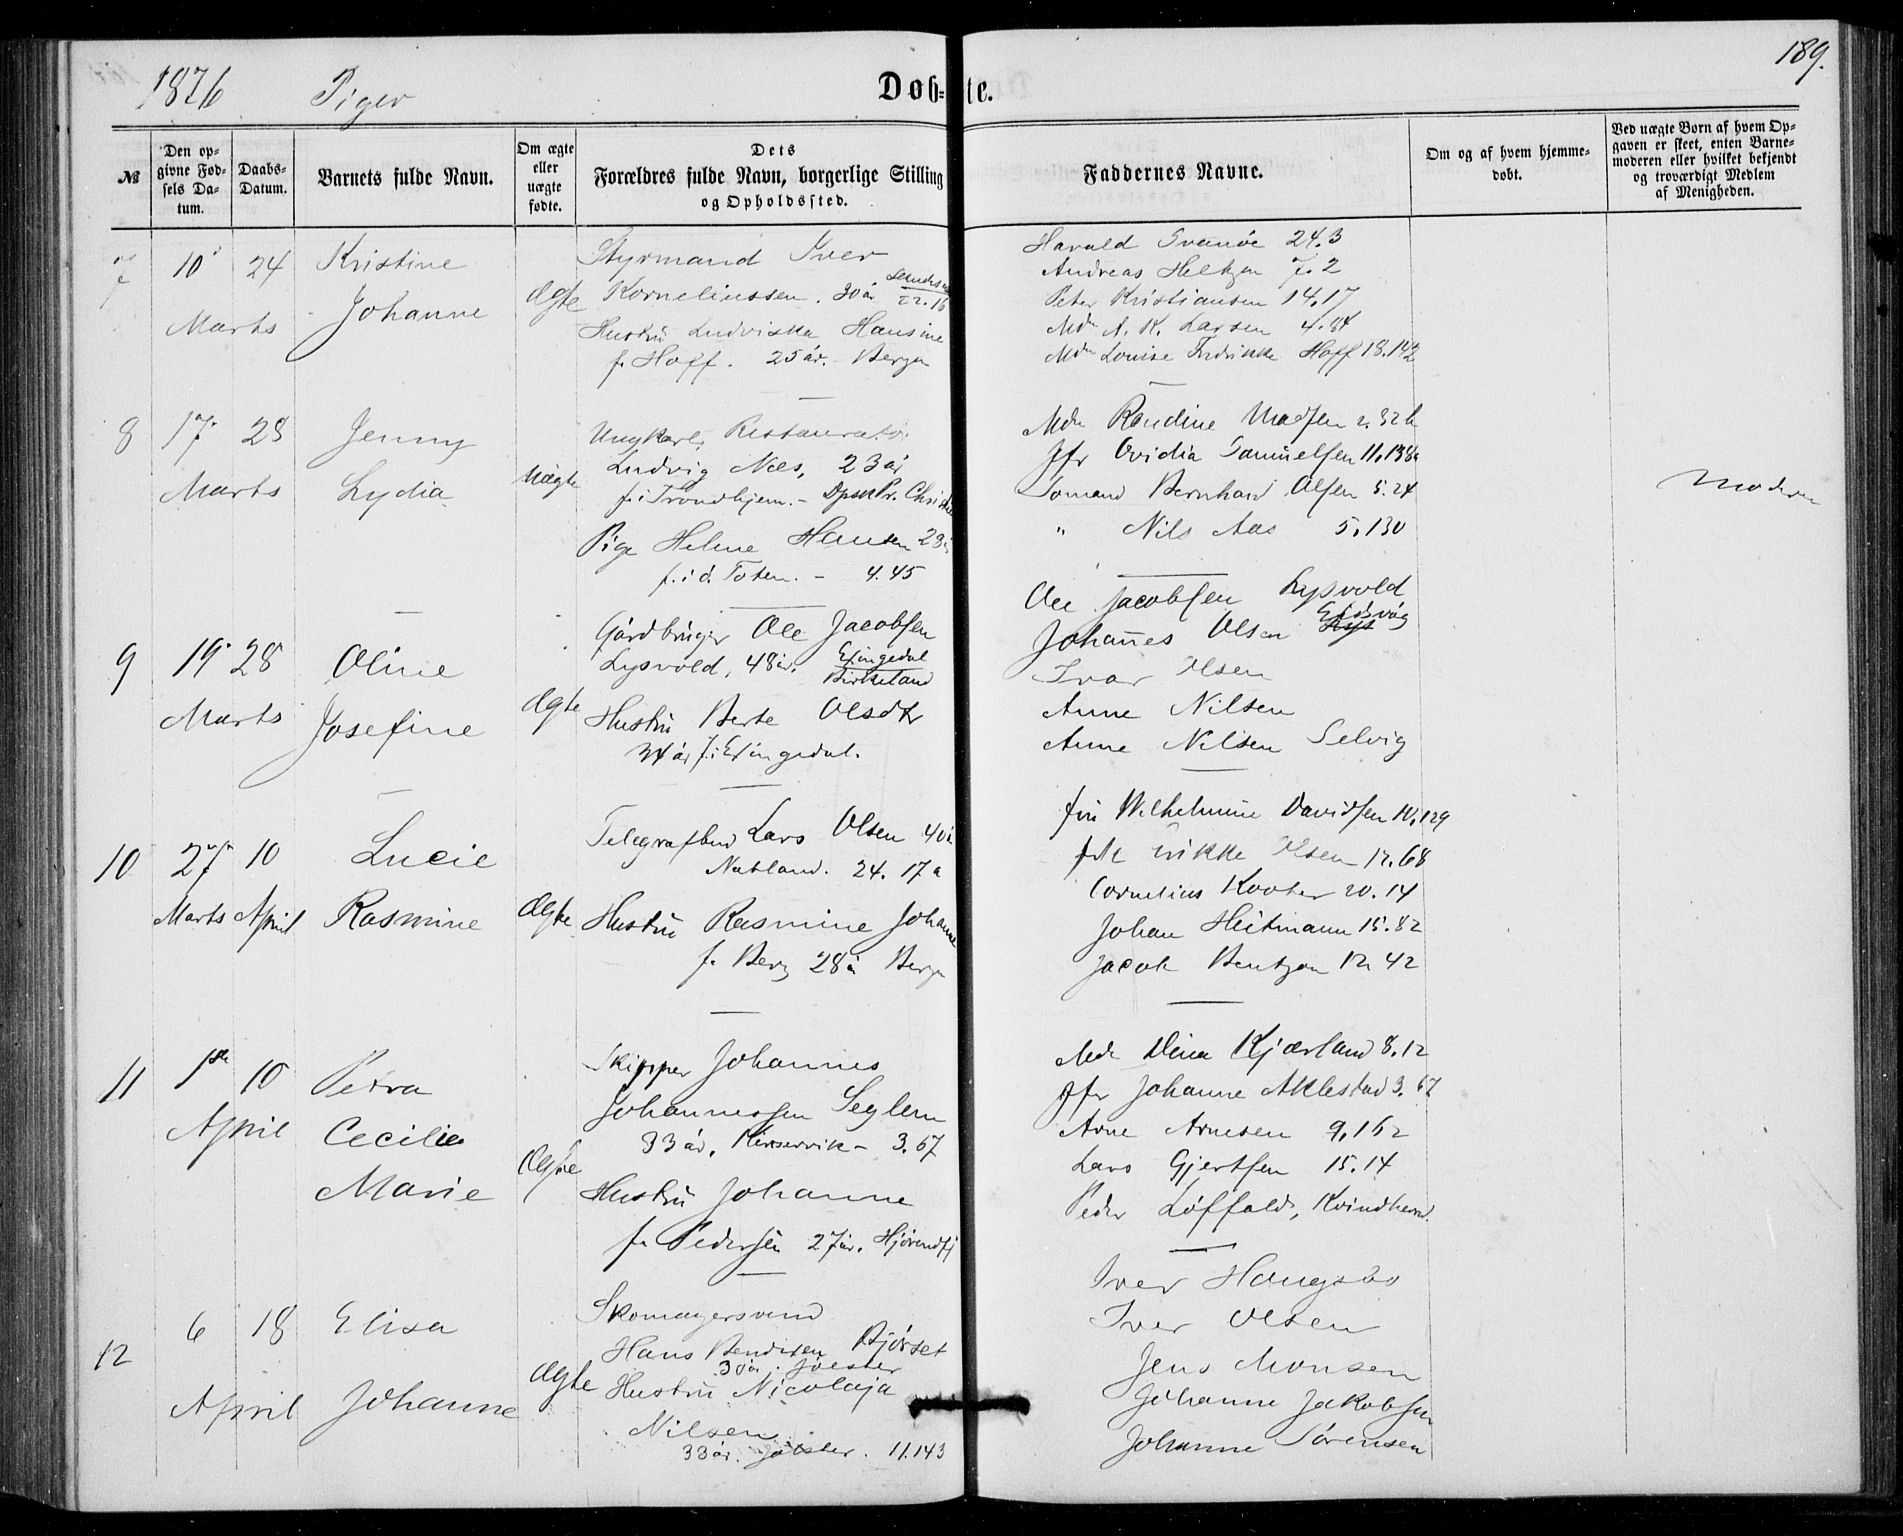 1876 Piger Døb-te. 189.
№
Den op-
givne Fød-
sels Da-
tum.
Daabs-
Datum.
Barnets fulde Navn.
Om ægte
eller
uægte
fødte.
Dets
Forældres fulde Navn, borgerlige Stilling
og Opholdssted.
Faddernes Navne.
Om og af hvem hjemme-
døbt.
Ved uægte Børn af hvem Op-
gaven er skeet, enten Barne-
moderen eller hvilket bekjendt
og troværdigt Medlem
af Menigheden.
7
10
Marts
24
Kristine
Johanne
Ægte
Styrmand Iver
Korneliussen. 30 år 22.16
Hustru Ludviska Hansine
f. Hoff. 25 år. - Bergen
Harald Svanøe 24.3
Andreas Heltzen 7.2
Peter Kristiansen 14.17
Mdm A. K. Larsen 4.84
Mdm Louise Fredrikke Hoff 18.142
8
17
Marts
28
Jenny
Lydia
Uægte
Ungkarl, Restauratør
Ludvig Næs, 23 år
f. i Trondhjem. -
Pige Helene Hansen 23
f. i Ø. Toten. - 4.45
Mdm Randine Madsen 2.32b
Jfr Ovidia Samuelsen 11.138a
Sømand Bernhard Olsen 5.24
" Nils Aas 5.130
Moderen
9
19
Marts
28
Oline
Josefine
Ægte
Gårdbruger Ole Jacobsen
Lysvold, 48 år. Exingedal
Birkeland
Hustru Berte Olsdtr
34 år f. i Exingedal.
Ole Jacobsen Lysvold
Johannes Olsen Eidsvåg
Ivar Olsen
Anne Nilsen
Anne Nilsen Selvig
10
27
Marts
10
April
Lucie
Rasmine
Ægte
Telegrafbud Lars Olsen 40 å
Natland. 24. 17a
Hustru Rasmine Johanne
f. Berg 28 å Bergen
Fru Wilhelmine Davidsen 10.129
Frk Rikke Olsen 12.68
Cornelius Kooter 20.14
Johan Heitmann 15.82
Jacob Bentzon 12.42
11
1ste
April
10
Petra
Cecilie
Marie
Ægte
Skipper Johannes
Johannessen Seglem
33 år, Kinservik - 3.67
Hustru Johanne
f. Pedersen 27 år. Hjørendfj
Mdm Dina Kjærland 8.12
Jfr Johanne Aklestad 3.67
Arne Arnesen 9.162
Lars Gjertsen 15.14
Peder Løffald, Kvindherred
12
6
April
18
Elisa
Johanne
Ægte
Skomagersvend
Hans Bendixen Bjørset
30 år. Jølster
Hustru Nicolaja
Nilsen
33 år. Jølster. 11.143
Iver Haugsbø
Iver Olsen
Jens Monsen
Johanne Jakobsen
Johanne Sørensen